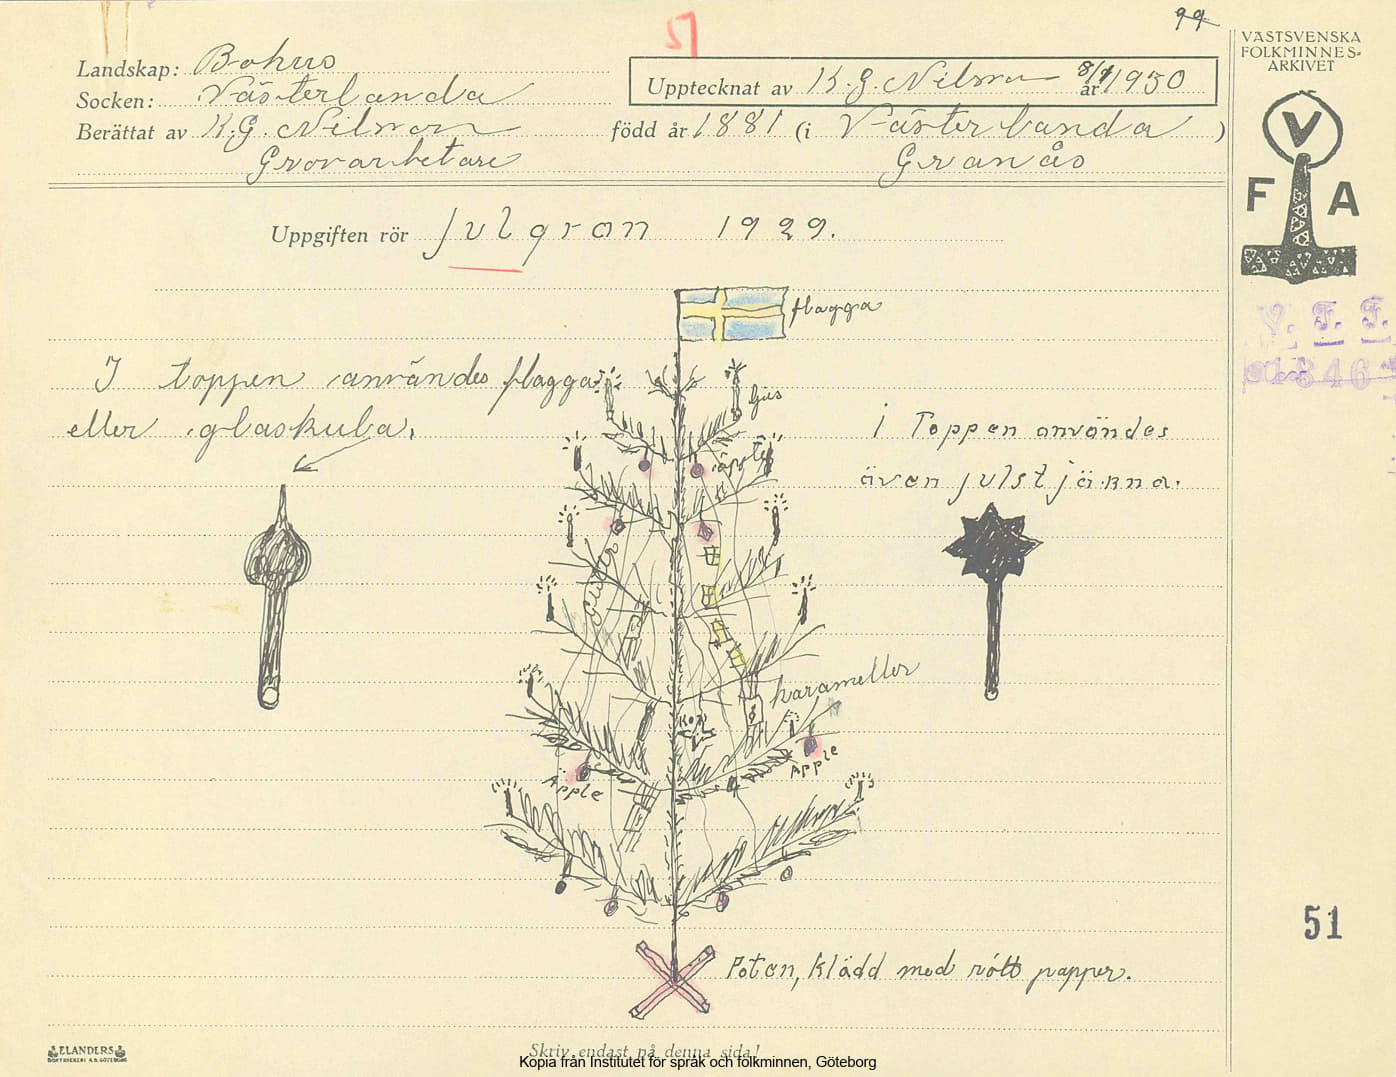 99
51
VÄSTSVENSKA
FOLKMINNES-
ARKIVET
Landskap: Bohus
Socken: Västerlanda
Upptecknat av K. G. Nilsson 8/1 år 1930
Berättat av K. G. Nilsson född år 1881 (i Västerlanda)
Grovarbetare Granås
V
F A
Uppgiften rör Julgran 1929.
flagga
I toppen användes flagga
eller glaskula.
ljus
i Toppen användes
även julstjärna.
äpple
karameller
Äpple
Äpple
foten, klädd med rött papper.
51
ELANDERS
BOKTRYCKERI A.B. GÖTEBORG
Skriv endast på denna sida!
Kopia från Institutet för språk och folkminnen, Göteborg